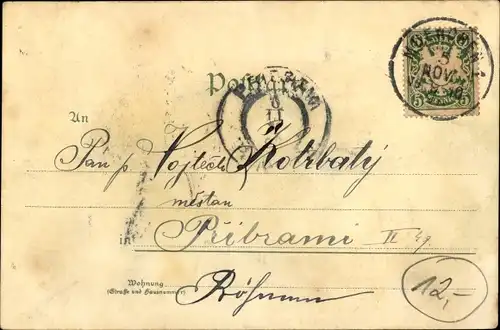 Postkarte
An
Pan p Vojtech Kotrbatý
mestan
in Příbrami II
Wohnung
(Straße und Hausnummer)
Böhmen
12,-
5 NOV
6 11
5 5